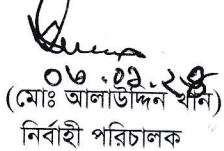 ০৬.০১.২৪
(মোঃ আলাউদ্দিন খান)
নির্বাহী পরিচালক